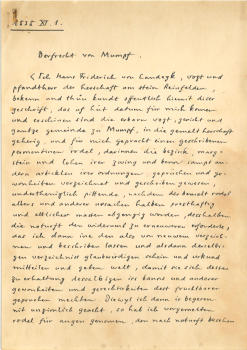 1535 XI. 1.
Dorfrecht von Mumpf.
Ich Hans Friderich von Landegk, vogt und
pfandtherr der herschaft am stein Reinfelden,
bekenn und thün kundt offentlich hiemit diser
geschrift, das uf hüt datum für mich komen
und erschinen sind die erbarn vogt, gericht und
gantze gemeinde zu Mumpf, in die gemelt herschaft
gehörig, und für mich gepracht einen geschribnen
permentinen rodel, darinnen die bezirk, marg-
stein und lohen irer zwing und benn sampt an-
dern articklen irer ordnungen, geprüchen und ge-
wonheiten verzeichnet und geschriben gewesen,
underthenigklich pittende, nachdem derselb rodel
alters und anderer ursachen halben presthaftig
und ettlicher maszen abgengig worden, desshalben
die noturft den widerumb zu ernewern erfordere,
das ich dann inen den also von newem verzeich-
nen und beschriben lassen und alsdann derselbi-
gen verzeichnis glaubwirdigen schein und urkund
mitteilen und geben welt, damit sie sich dessen
zu erhaltung desselbigen irs banns und anderer
gewonheiten und gerechtikeiten dest fruchtbarer
geprüchen mechten. Diewyl ich dann ir begeren
nit unzimlich geacht, so hab ich vorgemelten
rodel für augen genomen, den nach noturft besehen